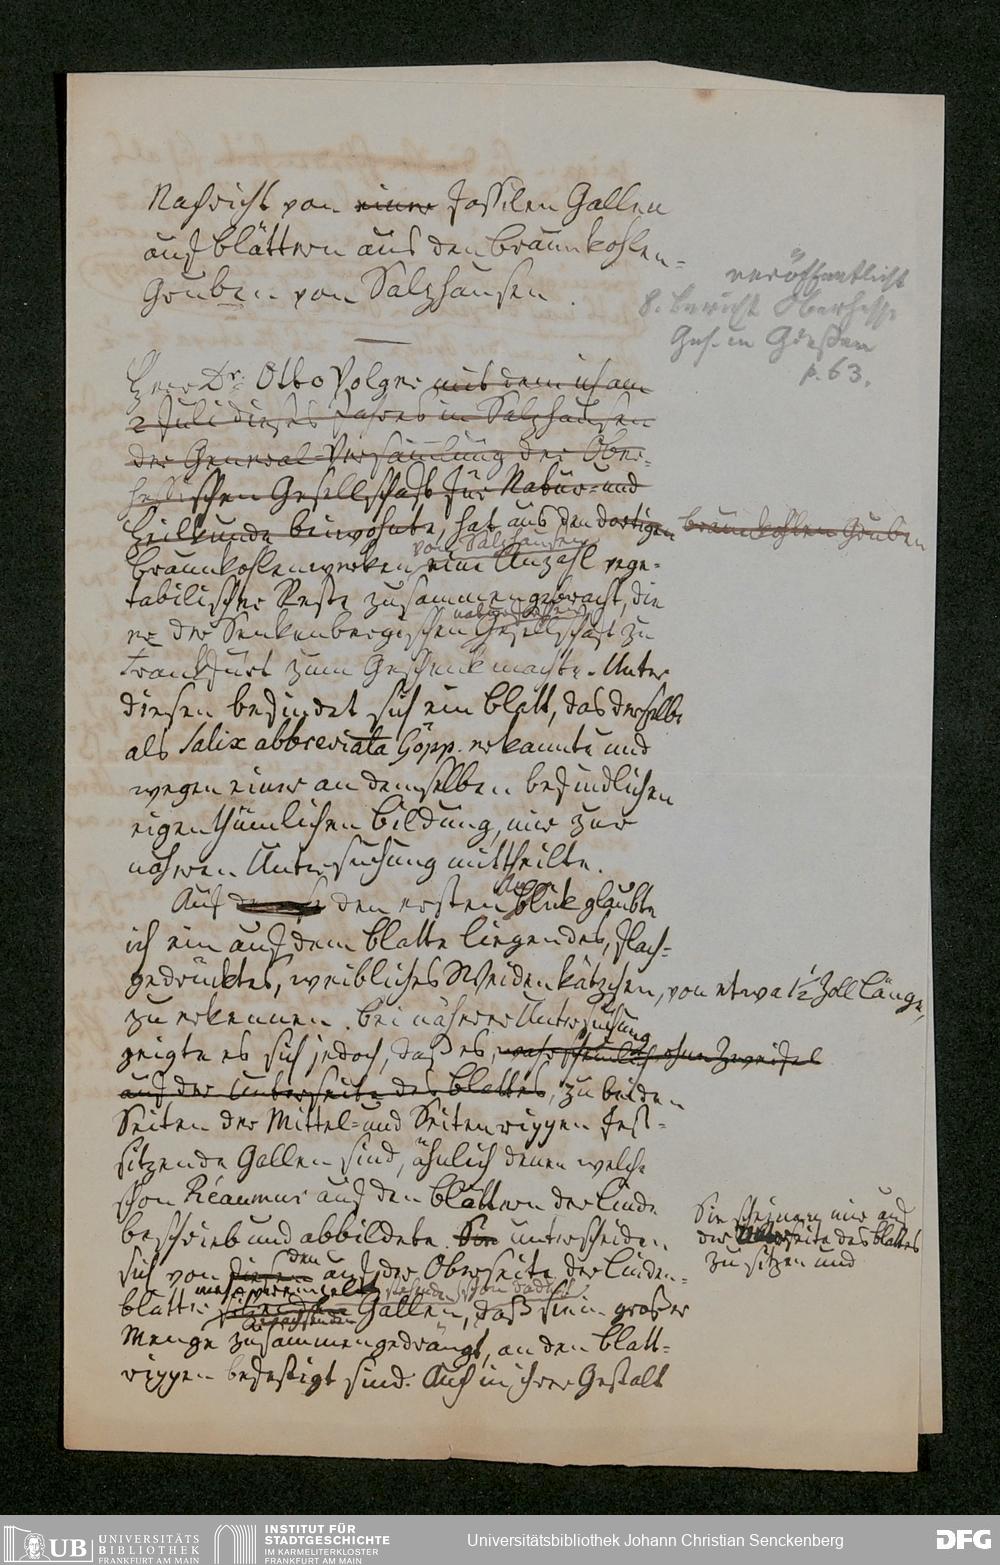 Nachricht von einer fossilen Gallen
auf Blättern aus den Braunkohlen-
Gruben von Salzhausen.
veröffentlicht
8. Bericht Oberhess.
Ges. in Gießen
p. 63.
Herr Dr. Otto Volger mit dem ich am
2 Juli dieses Jahres in Salzhausen
der General-Versamlung der Ober-
hessischen Gesellschaft für Natur- und
Heilkunde beiwohnte, hat aus den dortigen Braunkohlen Gruben
von Salzhausen
Braunkohlenwerken eine Anzahl vege-
tabilischer Reste zusammengebracht, die
naturforschenden
er der Senkenbergischen Gesellschaft zu
Frankfurt zum Geschenk machte. Unter
diesen befindet sich ein Blatt, das derselbe
als Salix abbreviata Göpp. erkannte und
wegen einer an demselben befindlichen
eigenthümlichen Bildung, mir zur
näheren Untersuchung mittheilte.
Auf den ersten Anblick glaubte
ich ein auf dem Blatte liegendes, flach-
gedrücktes, weibliches Weidenkätzchen, von etwa 1 1/2 Zoll Länge,
zu erkennen. Bei näherer Untersuchung
zeigte es sich jedoch, daß es, wahrscheinlich ohne Zweifel
auf der Unterseite des Blattes, zu beiden
Seiten der Mittel- und Seitenrippen fest-
sitzende Gallen sind, ähnlich denen welche
schon Réaumur auf den Blättern der Linde
beschrieb und abbildete. Sie unterscheiden
Sie scheinen mir auf
der Unterseite des Blattes
zu sitzen und
sich von diesen den auf der Oberseite der Linden-
blätter mehr vereinzelt stehenden schon dadurch
sitzenden Gallen, daß sie in großer
Menge zusammengedrängt, an den Blatt-
rippen befestigt sind. Auch in ihrer Gestalt
UB UNIVERSITÄTS
BIBLIOTHEK
FRANKFURT AM MAIN
INSTITUT FÜR
STADTGESCHICHTE
IM KARMELITERKLOSTER
FRANKFURT AM MAIN
Universitätsbibliothek Johann Christian Senckenberg
DFG